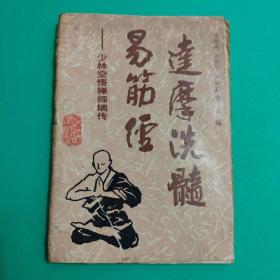 達摩洗髓
易筋經
——少林空悟禅师嫡传
编